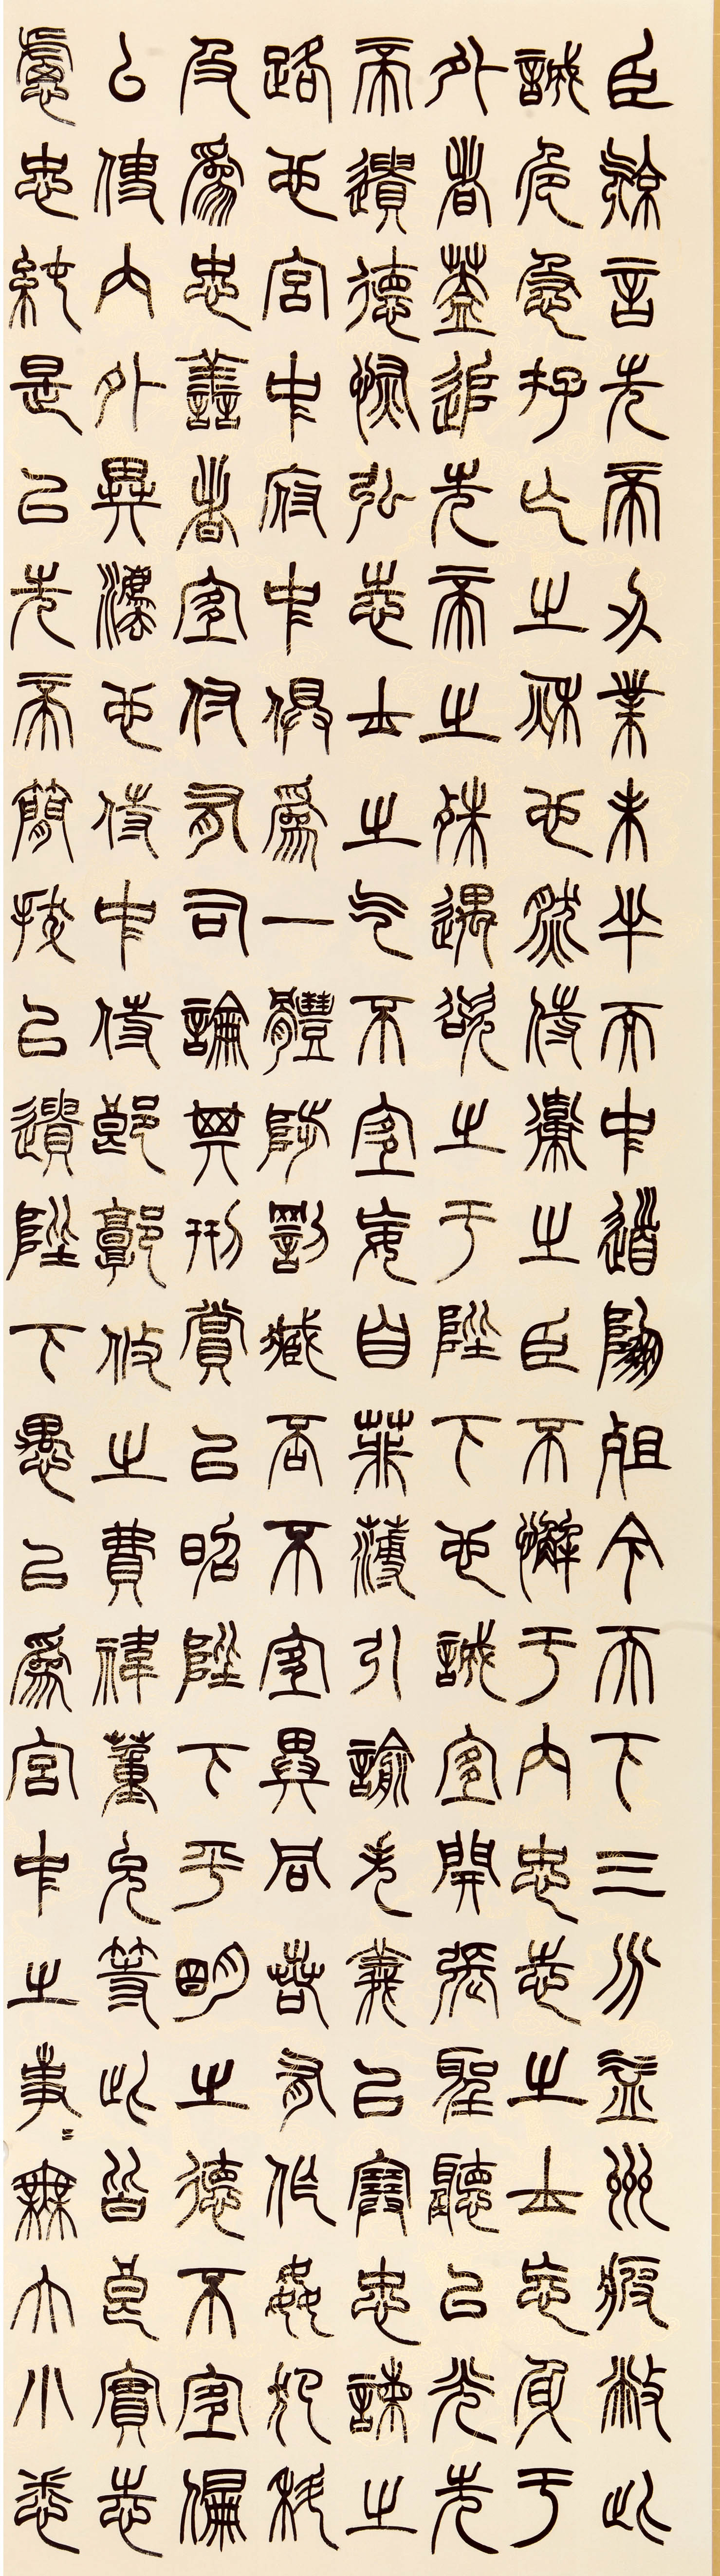 臣亮言先帝創業未半而中道崩殂今天下三分益州疲敝此
誠危急存亡之秋也然侍衛之臣不懈于內忠志之士忘身于
外者蓋追先帝之殊遇欲之于陛下也誠宜開張聖聽以光先
帝遺德恢弘志士之氣不宜妄自菲薄引喻失義以塞忠諫之
路也宮中府中俱為一體陟罰臧否不宜異同若有作姦犯科
及為忠善者宜付有司論其刑賞以昭陛下平明之德不宜偏
厶使內外異法也侍中侍郎郭攸之費禕董允等此皆良實志
慮忠純是以先帝簡拔以遺陛下愚以為宮中之事〻無大小悉